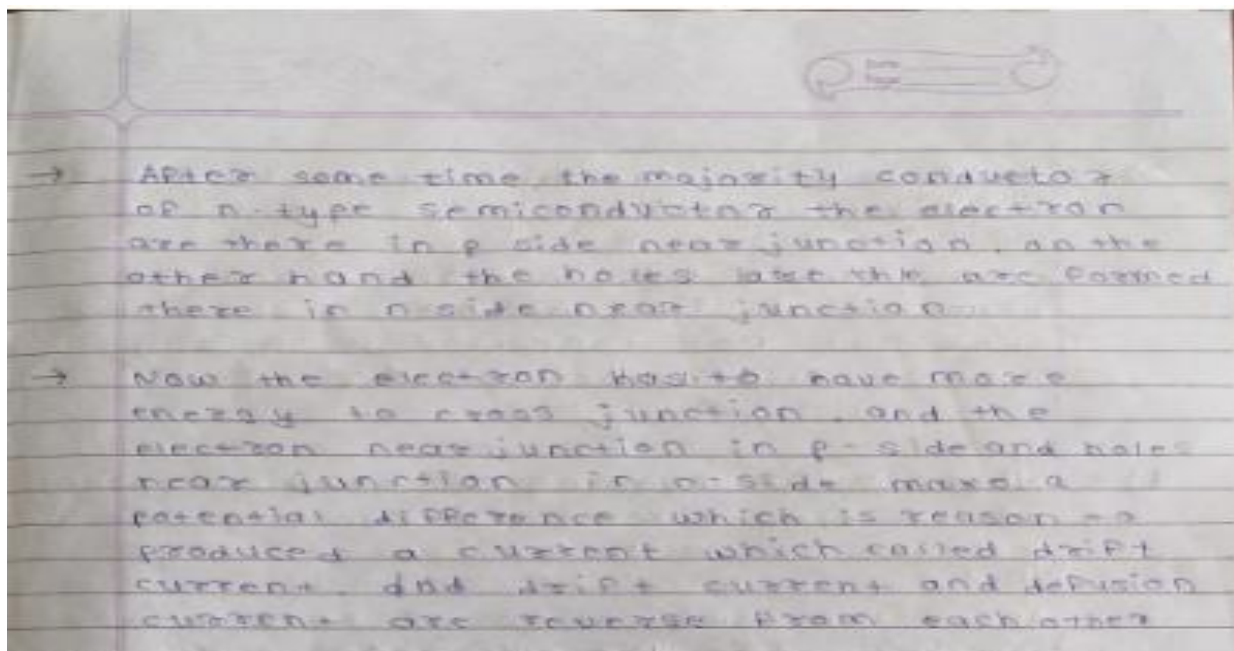 → After some time the majority conductor
of n-type semiconductor the electron
are there in p side near junction, on the
other hand the holes are formed
there in n side near junction.
→ Now the electron has to have more
energy to cross junction, and the
electron near junction in p-side and holes
near junction in n-side make a
potential difference which is reason to
produced a current which called drift
current. and drift current and defusion
current are reverse from each other